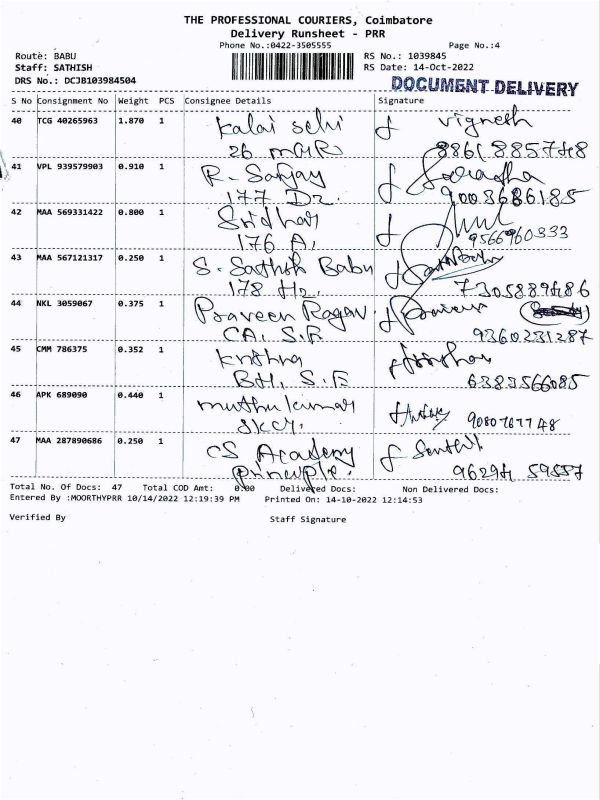 THE PROFESSIONAL COURIERS, Coimbatore
Delivery Runsheet - PRR
Phone No.:0422-3505555 Page No.:4
Route: BABU RS No.: 1039845
Staff: SATHISH RS Date: 14-Oct-2022
DRS No.: DCJB103984504 DOCUMENT DELIVERY
S No Consignment No Weight PCS Consignee Details Signature
40 TCG 40265963 1.870 1 Kalai selvi Vignesh
26 MGR
41 VPL 939579903 0.910 1 R. Sanjay
177 D2. 9003686185
42 MAA 569331422 0.800 1 Sridhar
176 A, 9566960333
43 MAA 567121317 0.250 1 S. Sathish Babu
178 H2. 7305889486
44 NKL 3059067 0.375 1 Praveen Ragav. Praveen
CA, S.F 9360231287
45 CMM 786375 0.352 1 Krithra
BH, S.F 6383566085
46 APK 689090 0.440 1 muthu kumar
SKCT. 9080767748
47 MAA 287890686 0.250 1 CS Academy Senthil
principle.
Total No. Of Docs: 47 Total COD Amt: 0.00 Delivered Docs: Non Delivered Docs:
Entered By :MOORTHYPRR 10/14/2022 12:19:39 PM Printed On: 14-10-2022 12:14:53
Verified By Staff Signature